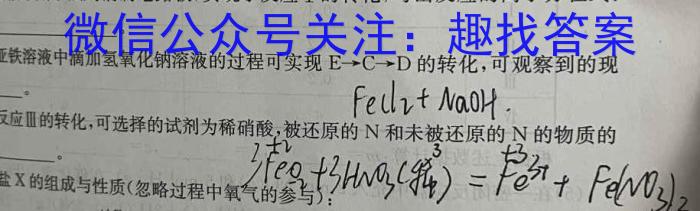 微信公众号关注：趣找答案
亚铁溶液中滴加氢氧化钠溶液的过程可实现 E→C→D 的转化，可观察到的现
______。
FeCl2 + NaOH.
反应Ⅲ的转化，可选择的试剂为稀硝酸，被还原的 N 和未被还原的 N 的物质的
______。
+2 +3
3FeO2 + 3HNO3(稀) = Fe3+ + Fe(NO3)2
盐 X 的组成与性质（忽略过程中氧气的参与）：